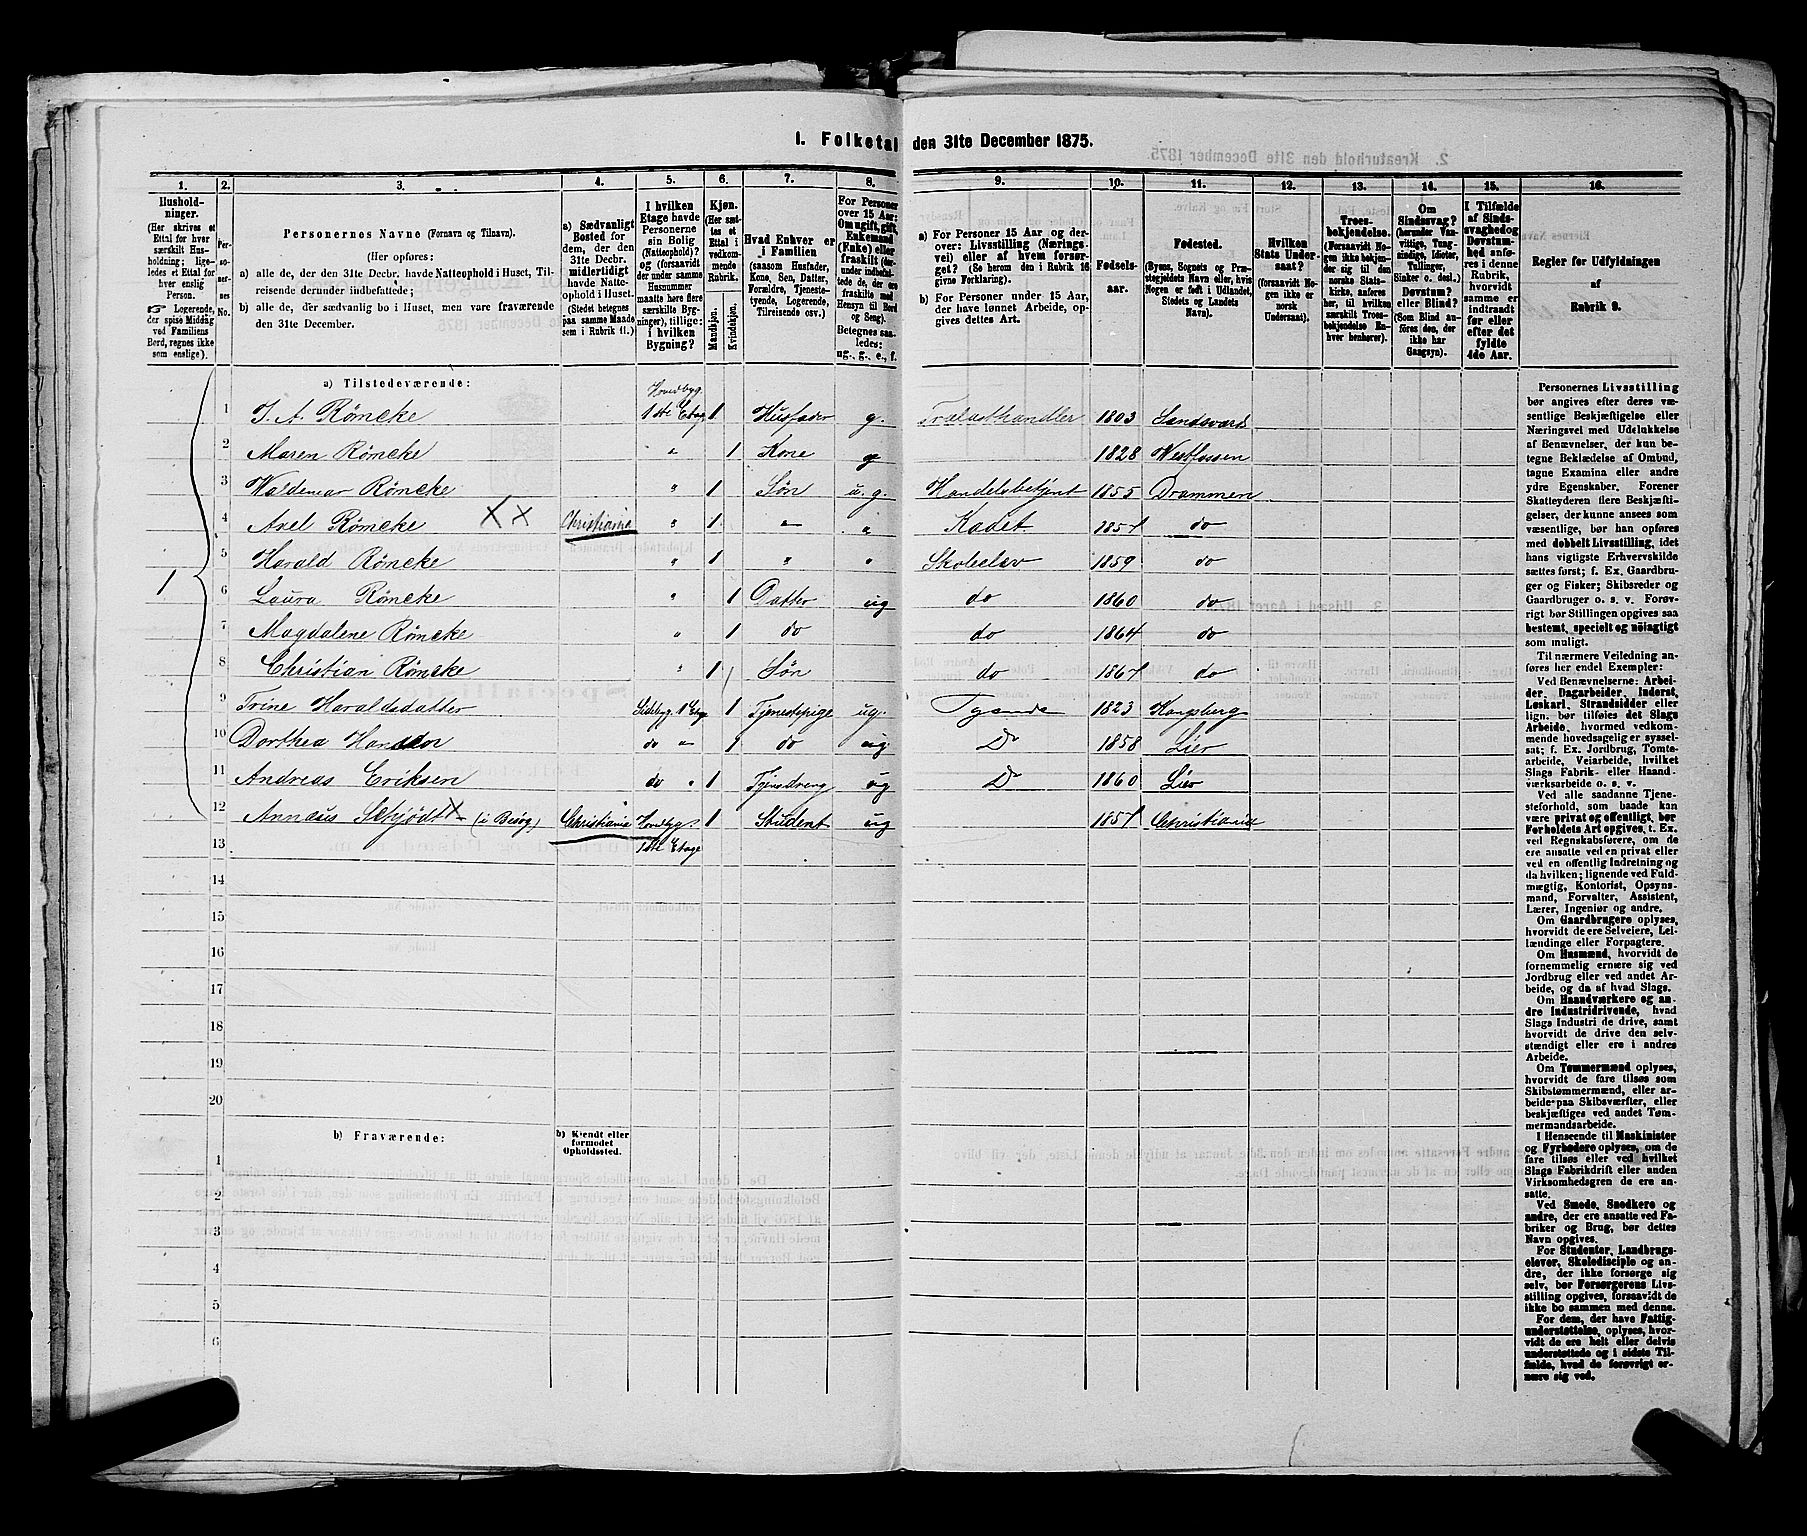 1. Folketal den 31te December 1875.
1.
2.
3.
4.
5.
6.
7.
8.
9.
10.
11.
12.
13.
14.
15.
16.
Hushold-
ninger.
(Her skrives et
Ettal for hver
særskilt Hus-
holdning; lige-
ledes et Ettal for
hver enslig
Person.
☞ Logerende,
der spise Middag
ved Familiens
Bord, regnes ikke
som enslige).
Per-
so-
ner-
nes
No.
Personernes Navne (Fornavn og Tilnavn).
(Her opføres:
a) alle de, der den 31te Decbr. havde Natteophold i Huset, Til-
reisende derunder indbefattede;
b) alle de, der sædvanlig bo i Huset, men vare fraværende
den 31te December.
a) Sædvanligt
Bosted for
dem, der den
31te Decbr.
midlertidigt
havde Natte-
ophold i Huset.
(Stedet betegnes
paa samme Maade
som i Rubrik 11.)
I hvilken
Etage havde
Personerne
sin Bolig
(Natteophold)?
og (forsaavidt
der under samme
Husnummer
maatte høre flere
særskilte Byg-
ninger), tillige:
i hvilken
Bygning?
Kjøn.
(Her sæt-
tes et
Ettal i
vedkom-
mende
Rubrik.
Mandkjøn.
Kvindekjøn.
Hvad Enhver er
i Familien
(saasom Husfader,
Kone, Søn, Datter,
Forældre, Tjeneste-
tyende, Logerende,
Tilreisende osv.)
For Personer
over 15 Aar:
Om ugift, gift,
Enkemand
(Enke) eller
fraskilt (de
under indbefat-
tede, der ere
fraskilte med
Hensyn til Bord
og Seng).
Betegnes saa-
ledes:
ug., g., e., f.
a) For Personer 15 Aar og der-
over: Livsstilling (Nærings-
vei) eller af hvem forsør-
get? (Se herom den i Rubrik 16
givne Forklaring).
b) For Personer under 15 Aar,
der have lønnet Arbeide, op-
gives dettes Art.
Fødsels-
aar.
Fødested.
(Byens, Sognets og Præ-
stegjeldets Navn eller, hvis
Nogen er født i Udlandet,
Stedets og Landets
Navn).
Hvilken
Stats Under-
saat?
(forsaavidt No-
gen ikke er
norsk
Undersaat).
Troes-
bekjendelse.
(Forsaavidt No-
gen ikke bekjen-
der sig til den
norske Stats-
kirke, anføres
her, til hvilken
særskilt Troes-
bekjendelse En-
hver henhører).
Om
Sindssvag?
(herunder Van-
vittige, Tung-
sindige, Idioter,
Tullinger,
Sinker o. desl.)
Døvstum?
eller Blind?
(Som Blind an-
føres den, der
ikke har
Gangsyn).
I Tilfælde
af Sinds-
svaghed og
Døvstum-
hed anfø-
res i denne
Rubrik,
hvorvidt
samme er
indtraadt
før eller
efter det
fyldte
4de Aar.
Regler for Udfyldningen
af
Rubrik 9.
a) Tilstedeværende:
1 1 J. A. Römcke Hovedbyg. 1ste Etage 1 Husfader g. Trælasthandler 1803 Sandsværd
2 Maren Römcke " 1 Kone g 1828 Westfossen
3 Waldemar Römcke " 1 Søn u. g. Handelsbetjent 1855 Drammen
4 Axel Römcke XX Christiania " 1 " " Kadet 1857 do
5 Harald Römcke " 1 " " Skoleelev 1859 do
6 Laura Römcke " 1 Datter ug do 1860 do
7 Magdalene Römcke " 1 do do 1864 do
8 Christian Römcke " 1 Søn do 1867 do
9 Trine Haraldsdatter Sidebyg. 1 Etag 1 Tjenestepige ug. Tyende 1823 Kongsberg
10 Dorthea do " 1 do ug Do 1858 Lier
11 Andreas Eriksen do " 1 Tjenedreng ug Do 1860 Lier
12 Annæus Schjödt X (i Besøg) Christiania Hovedbyg. 1 Student ug 1857 Christiania
13 1ste Etage
14
15
16
17
18
19
20
b) Fraværende:
b) Kjendt eller
formodet
Opholdssted.
1
2
3
4
5
6
Personernes Livsstilling
bør angives efter deres væ-
sentlige Beskjæftigelse eller
Næringsvei med Udelukkelse
af Benævnelser, der kun be-
tegne Beklædelse af Ombud,
tagne Examina eller andre
ydre Egenskaber. Forener
Skatteyderen flere Beskjæfti-
gelser, der kunne ansees som
væsentlige, bør han opføres
med dobbelt Livsstilling, idet
hans vigtigste Erhvervskilde
sættes først; f. Ex. Gaardbru-
ger og Fisker; Skibsreder og
Gaardbruger o. s. v. Forøv-
rigt bør Stillingen opgives saa
bestemt, specielt og nøiagtigt
som muligt.
Til nærmere Veiledning an-
føres her endel Exempler:
Ved Benævnelserne: Arbei-
der, Dagarbeider, Inderst,
Løskarl, Strandsidder eller
lign. bør tilføies det Slags
Arbeide, hvormed vedkom-
mende hovedsagelig er syssel-
sat; f. Ex. Jordbrug, Tomte-
arbeide, Veiarbeide, hvilket
Slags Fabrik- eller Haand-
værksarbeide o. s. v.
Ved alle saadanne Tjene-
steforhold, som baade kan
være privat og offentligt, bør
Forholdets Art opgives, t. Ex.
ved Regnskabsførere, om de
ere ansatte ved en privat eller
ved en offentlig Indretning og
da hvilken; lignende ved Fuld-
mægtig, Kontorist, Opsyns-
mand, Forvalter, Assistent,
Lærer, Ingeniør og andre.
Om Gaardbrugere oplyses,
hvorvidt de ere Selveiere, Lei-
lændinge eller Forpagtere.
Om Husmænd, hvorvidt de
fornemmelig ernære sig ved
Jordbrug eller ved andet Ar-
beide, og da af hvad Slags.
Om Haandværkere og an-
dre industridrivende, hvad
Slags Industri de drive, samt
hvorvidt de drive den selv-
stændigt eller ere i andres
Arbeide.
Om Tømmermænd oplyses,
hvorvidt de fare tilsøs som
Skibstømmermænd, eller ar-
beide paa Skibsværfter, eller
beskjæftiges ved andet Tøm-
mermandsarbeide.
I Henseende til Maskinister
og Fyrbødere oplyses, om de
fare tilsøs eller ved hvilket
Slags Fabrikdrift eller anden
Virksomhedsgren de ere an-
satte.
Ved Smede, Snedkere og
andre, der ere ansatte ved Fa-
briker og Brug, bør dettes
Navn opgives.
For Studenter, Landbrugs-
elever, Skoledisciple og an-
dre, der ikke forsørge sig
selv, bør Forsørgerens Livs-
stilling opgives, forsaavidt de
ikke bo sammen med denne.
For dem, der have Fattig-
understøttelse, oplyses, hvor-
vidt de ere helt eller delvis
understøttede og i sidste Til-
fælde, hvad de forøvrigt er-
nære sig ved.